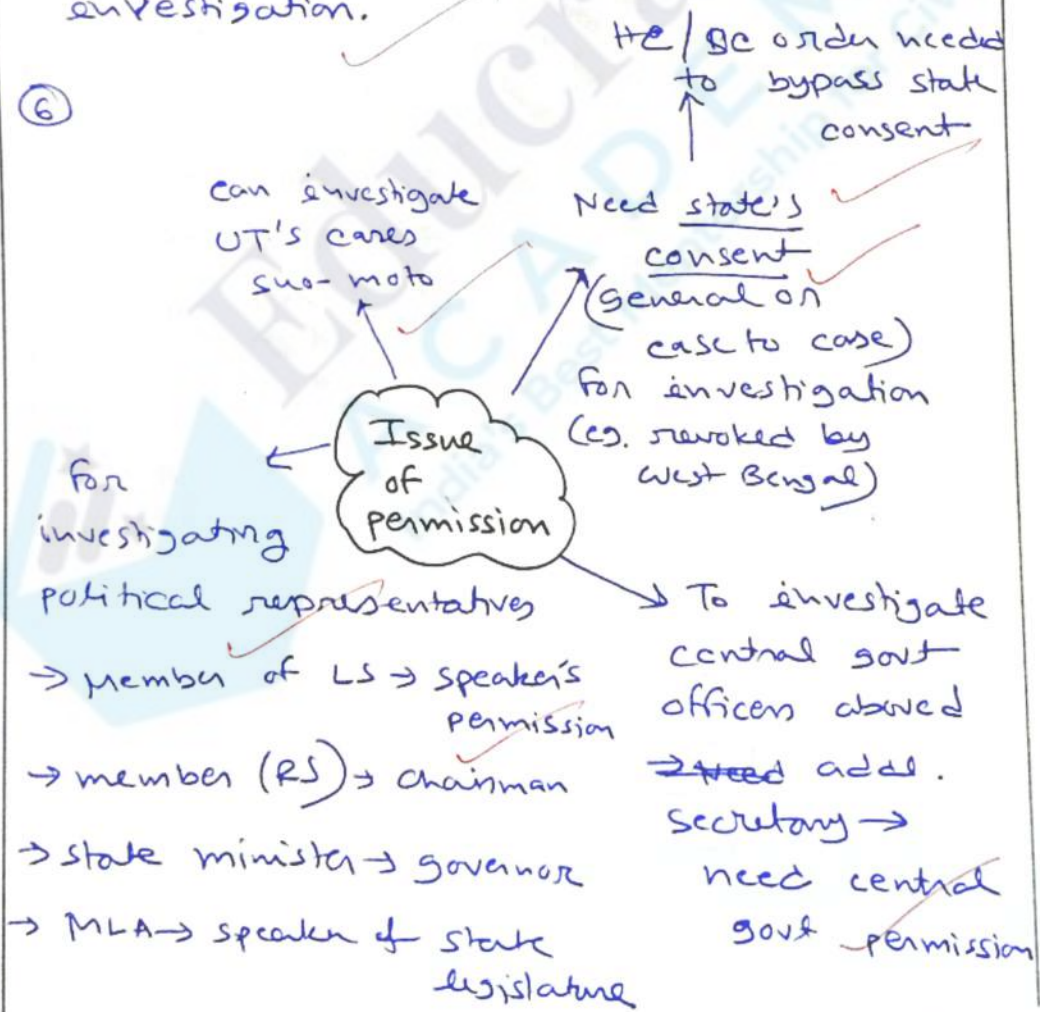 investigation.
HC/SC order needed
to bypass state
consent
6
can investigate
UT's cases
suo-moto
Need state's
consent
(general or
case to case)
for investigation
(eg. revoked by
West Bengal)
Issue
of
permission
for
investigating
political representatives
→ Member of LS → speaker's
permission
→ member (RS) → Chairman
→ state minister → governor
→ MLA → speaker of state
legislature
To investigate
central govt
officers
addl.
secretary →
need central
govt permission
Educra
ACADEM
India's Best Mentorship for Civ